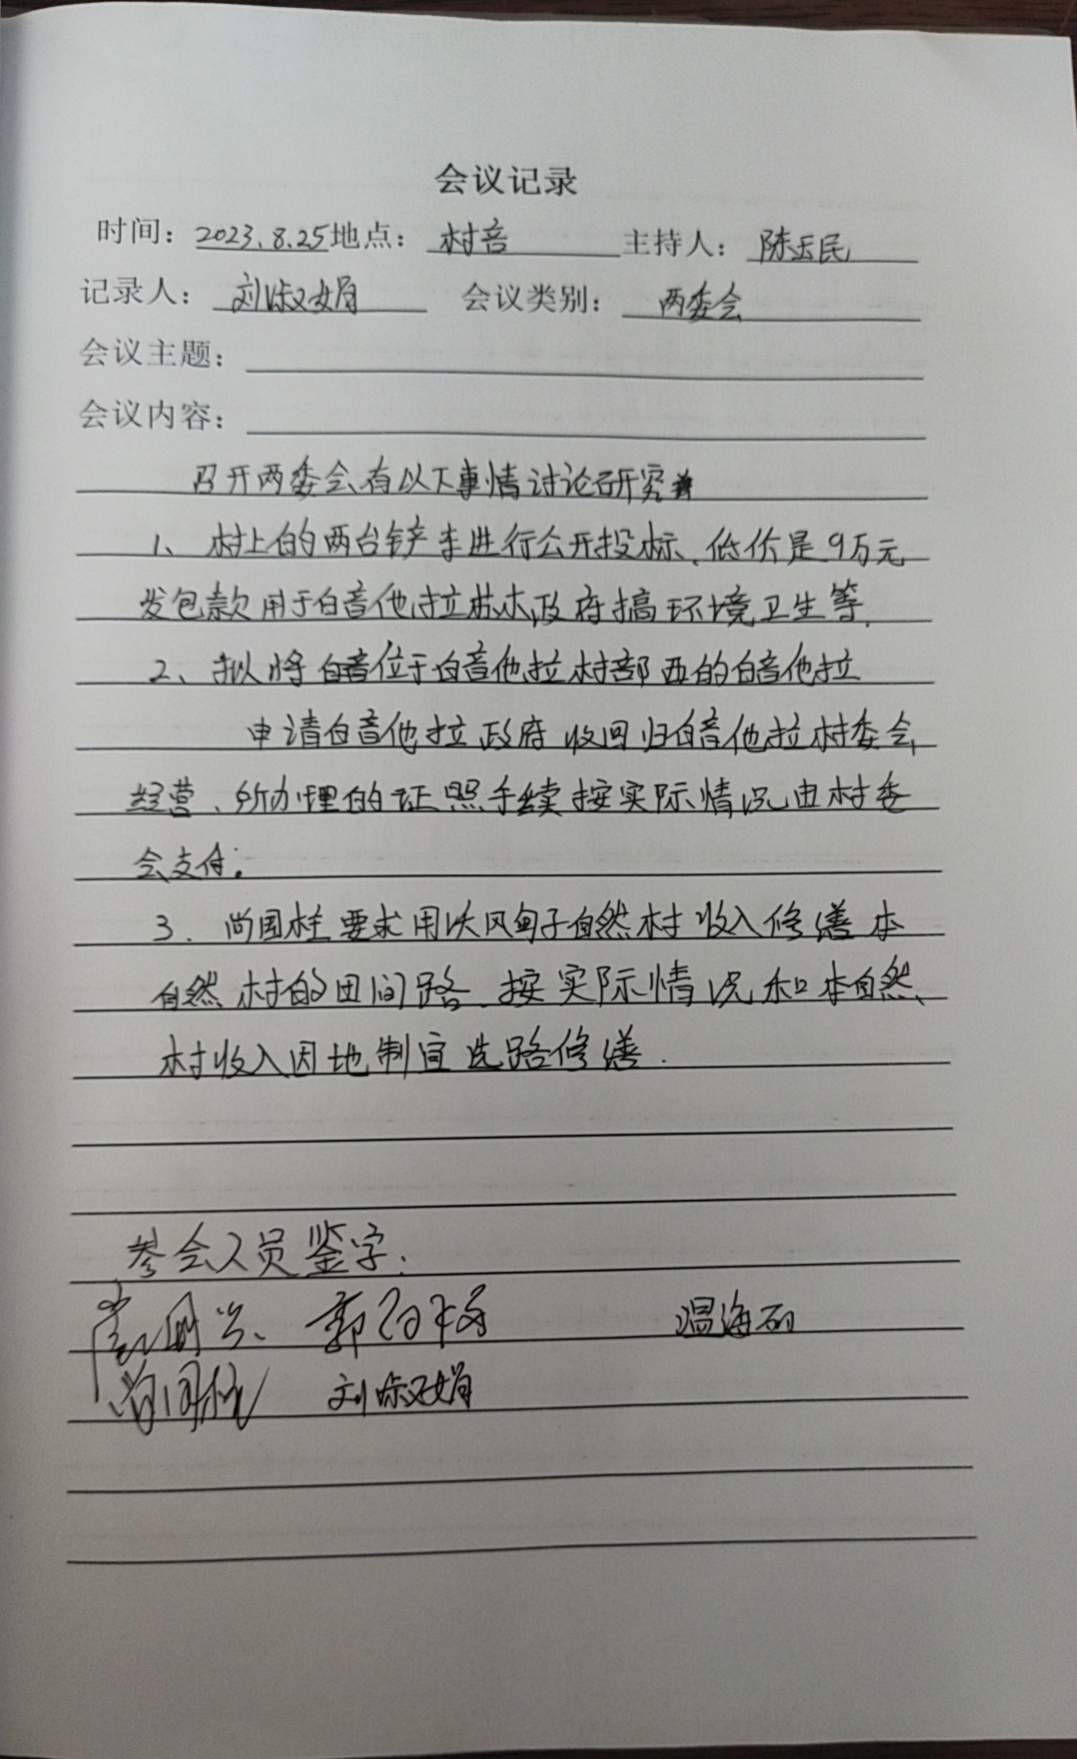 会议记录
时间：2023.8.25地点：村部 主持人：陈玉民
记录人：刘淑娟 会议类别：两委会
会议主题：
会议内容：
召开两委会有以下事情讨论研究
1、村上的两台铲车进行公开投标、低价是9万元
发包款用于白音他拉苏木政府搞环境卫生等.
2、拟将 位于白音他拉村部西的白音他拉
申请白音他拉政府收回归白音他拉村委会
经营、所办理的证照手续按实际情况由村委
会支付.
3. 尚国柱要求用伏风甸子自然村收入修缮本
自然村的田间路.按实际情况和本自然
村收入因地制宜选路修缮.
参会人员鉴字:
温海
尚国柱 刘淑娟